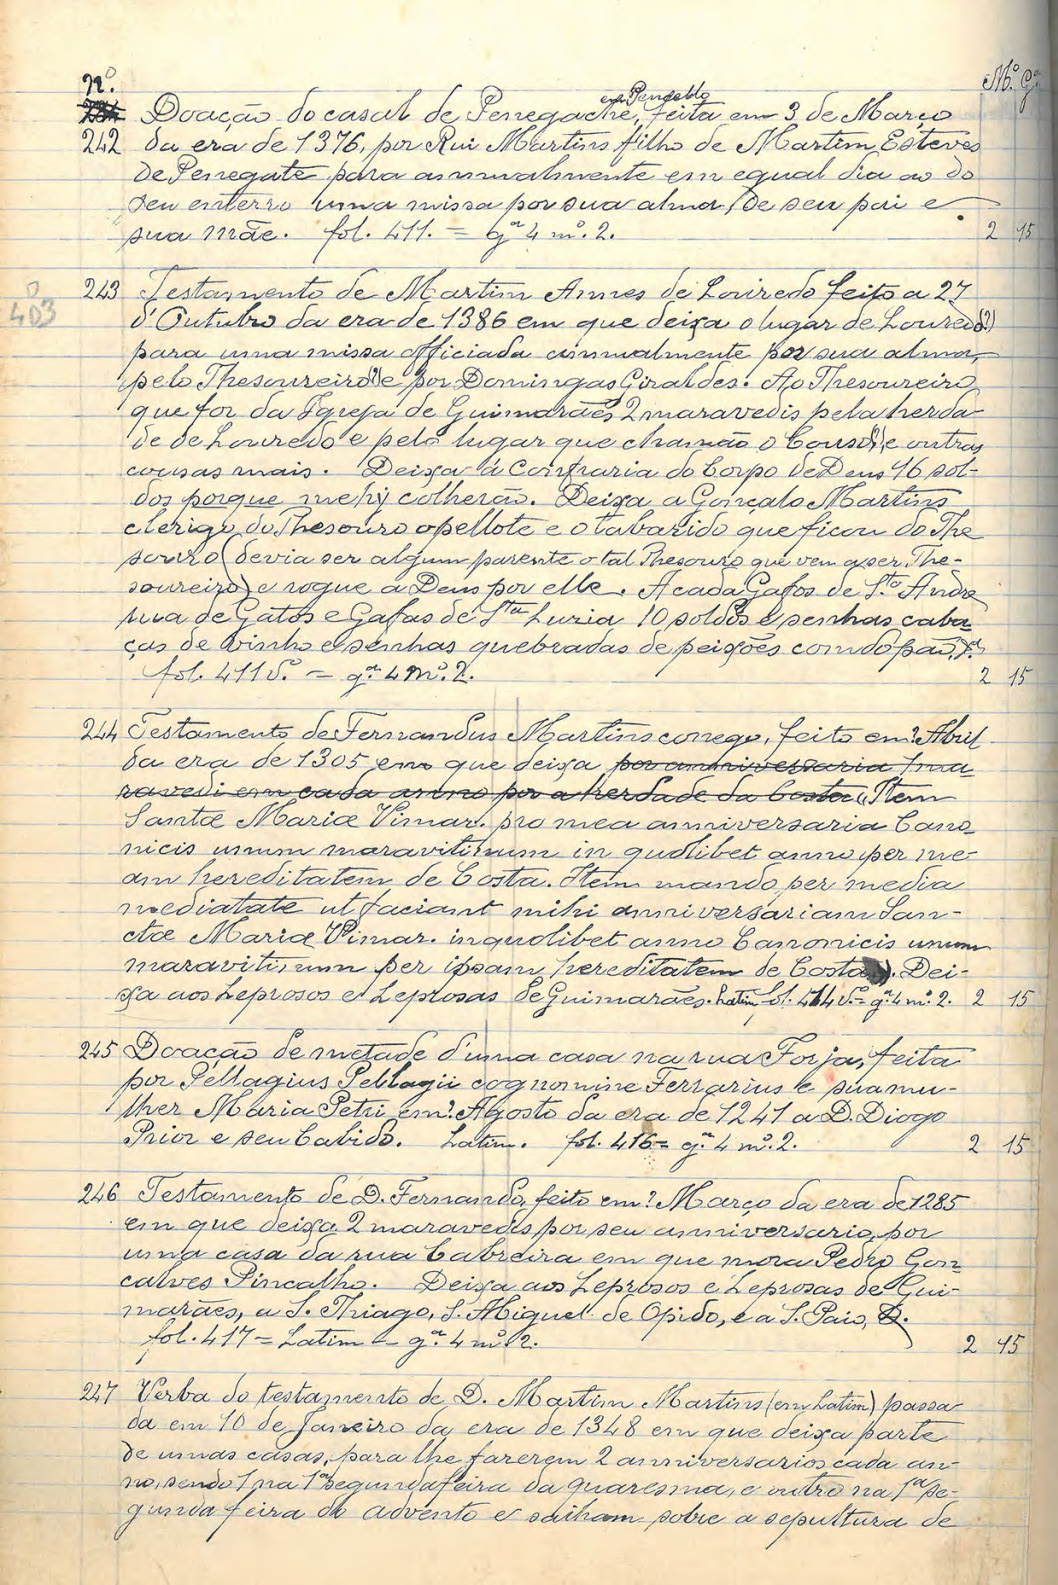 N.º
Mº Gª
em Penseblo
Doação do casal de Penegache, feita em 3 de Março
242 da era de 1376, por Rui Martins filho de Martim Esteves
de Penegate para annualmente em egual dia ao do
seu enterro uma missa por sua alma, de seu pai e
sua mãe. fol. 411. = gª 4 mº. 2. 2 15
403
243 Testamento de Martim Annes de Louredo feito a 27
d'Outubro da era de 1386 em que deixa o lugar de Louredo(?)
para uma missa officiada annualmente por sua alma,
pelo Thesoureiro(?) e por Domingas Giraldes. Ao Thesoureiro
que for da Igreja de Guimarães 2 maravedis pela herda-
de de Louredo e pelo lugar que chamão o Couso(?) e outras
cousas mais. Deixa á Confraria do Corpo de Deus 16 sol-
dos porque mehy colherão. Deixa a Gonçalo Martins
clerigo do Thesouro o pellote e o tabardo que ficou do The
souro (devia ser algum parente o tal Thesouro que vem a ser The-
soureiro) e rogue a Deus por elle. A cada Gafos de S.to André
rua de Gatos e Gafas de S.ta Luzia 10 soldos e senhas caba
ças de vinho e senhas quebradas de peixões com do pão,
fol. 411 v.º = gª 4 mº. 2. 2 15
244 Testamento de Fernandus Martins conego, feito em? Abril
da era de 1305 em que deixa por anniversaria 1 ma
ravedi em cada anno por a herdade da Costa "Item
Sanctæ Mariæ Vimar. pro mea anniversaria Cano
nicis unum maravitinum in quolibet anno per me-
am hereditatem de Costa. Item mando per media
medietate ut faciant mihi anniversariam San-
ctæ Mariæ Vimar. in quolibet anno Canonicis unum
maravitinum per ipsam hereditatem de Costa). Dei-
xa aos Leprosos e Leprosas de Guimarães. Latim fol. 414 v.º = gª 4 mº. 2. 2 15
245 Doação de metade d'uma casa na rua Forja, feita
por Pellagius Pellagii cognomine Ferrarius e sua mu-
lher Maria Petri em? Agosto da era de 1241 a D. Diogo
Prior e seu Cabido. Latim. fol. 416 = gª 4 mº. 2. 2 15
246 Testamento de D. Fernando, feito em? Março da era de 1285
em que deixa 2 maravedis por seu anniversario, por
uma casa da rua Cabreira em que mora Pedro Gon
calves Pincalho. Deixa aos Leprosos e Leprosas de Gui-
marães, a S. Thiago, S. Miguel de Opido, e a S. Paio,
fol. 417 = Latim = gª 4 mº. 2. 2 15
247 Verba do testamento de D. Martim Martins (em Latim) passa
da em 10 de Janeiro da era de 1348 em que deixa parte
de umas casas, para lhe fazerem 2 anniversarios cada an-
no, sendo 1 na 1ª segunda feira da quaresma, e outro na 1ª se-
gunda feira do advento e saiham sobre a sepultura de